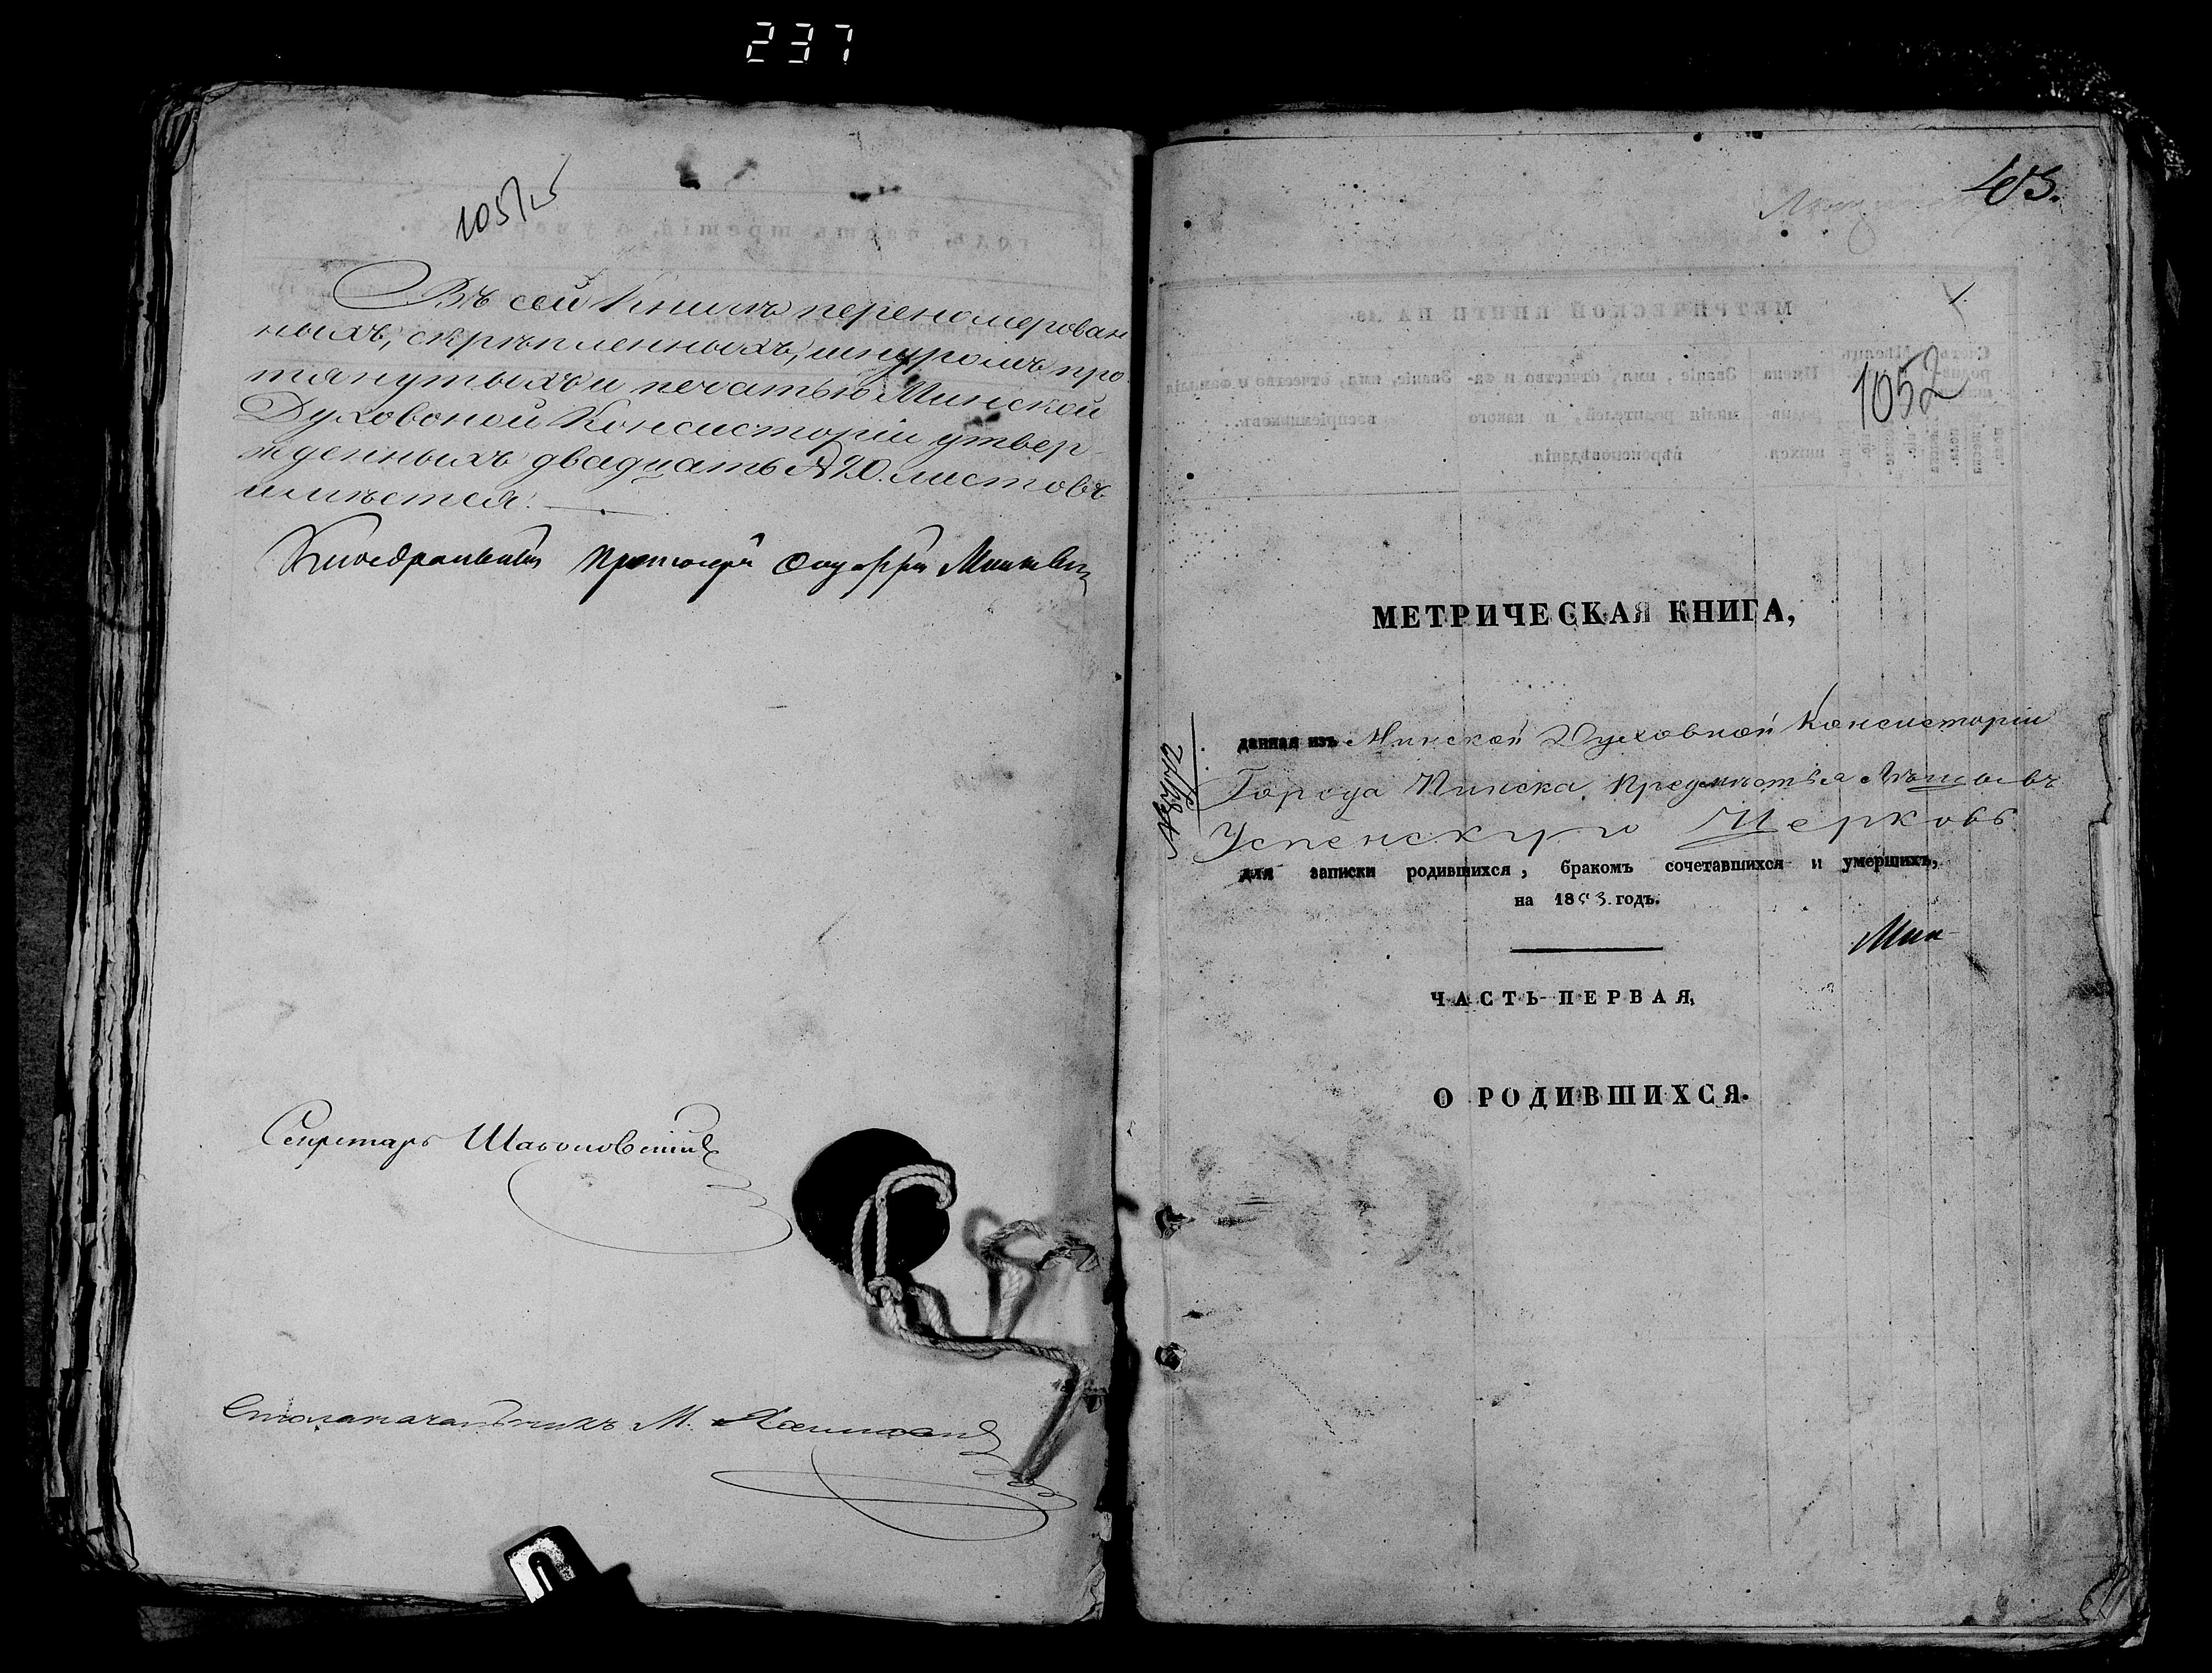 237
Въ сей Книгѣ переномерован
ныхъ, скрѣпленныхъ, шнуромъ про
тянутыхъ и печатью Минской
Духовной Консисторіи утвер
жденныхъ двадцать 20. листовъ
имѣется.
Каѳедральный Протоіерей
Секретарь
Столоначальникъ М.
403.
1052
МЕТРИЧЕСКАЯ КНИГА,
данная изъ Минской Духовной Консисторіи
Города Пинска Предмѣстья
Успенскую Церковь
для записки родившихся, бракомъ сочетавшихся и умершихъ,
на 1853. годъ.
Мин
ЧАСТЬ ПЕРВАЯ,
О РОДИВШИХСЯ.